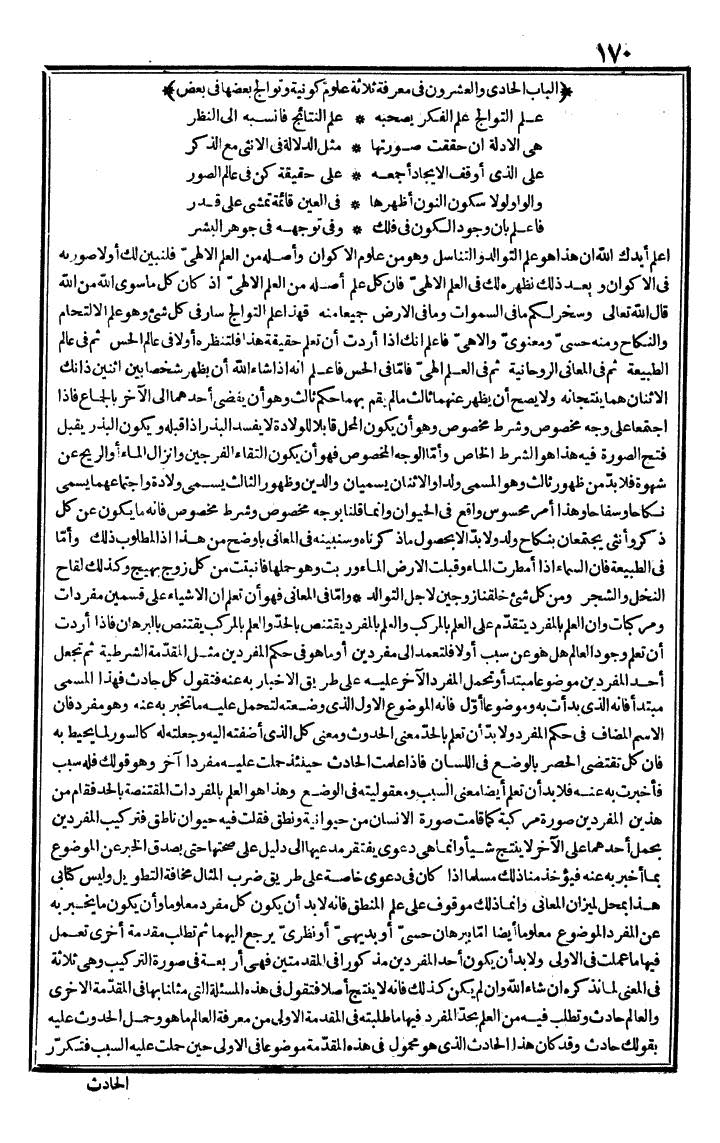 ١٧٠
﴿الباب الحادى والعشرون فى معرفة ثلاثة علوم كونية وتوالج بعضها فى بعض﴾
عـلم التوالج علم الفكر يصحبه * علم النتائج فانسبه الى النظر
هى الادلة ان حققت صـورتها * مثل الدلالة فى الانثى مع الذكر
على الذى أوقف الايجاد أجمعـه * على حقيقة كن فى عالم الصور
والواو لولا سكون النون أظهرها * فى العين قائمة تمشى على قـدر
فاعـلم بان وجود الـكون فى فلك * وفى توجهـه فى جوهر البشر
اعلم أيدك الله ان هذا هو علم التوالد والتناسل وهو من علوم الاكوان وأصله من العلم الالهىّ فلنبين لك أولا صورته
فى الاكوان و بعـد ذلك نظهره لك فى العلم الالهىّ فان كل علم أصـله من العلم الالهىّ اذ كان كل ماسوى الله من الله
قال الله تعالى وسخر لـكم مافى السموات ومافى الارض جميعا منه فهذا علم التوالج سار فى كل شئ وهو علم الالتحام
والنكاح ومنه حسىّ ومعنوىّ والاهىّ فاعلم انك اذا أردت أن تعلم حقيقة هذا فلتنظره أولا فى عالم الحس ثم فى عالم
الطبيعة ثم فى المعانى الروحانية ثم فى العـلم الهىّ فامّا فى الحس فاعـلم انه اذا شاء الله أن يظهر شخصا بين اثنين ذانك
الاثنان هما ينتجانه ولا يصح أن يظهر عنهما ثالث مالم يقم بهما حكم ثالث وهو أن يفضى أحدهما الى الآخر بالجماع فاذا
اجتمعا على وجه مخصوص وشرط مخصوص وهو أن يكون المحل قابلا للولادة لا يفسد البذر اذا قبله و يكون البذر يقبل
فتح الصورة فيه هذا هو الشرط الخاص وأمّا الوجه المخصوص فهو أن يكون التقاء الفرجين وانزال الماء أو الريح عن
شهوة فلا بدّ من ظهور ثالث وهو المسمى ولدا والاثنان يسميان والدين وظهور الثالث يسـمى ولادة واجتماعهما يسمى
نـكاحا وسفاحا وهذا أمر محسوس واقع فى الحيوان وانما قلنا بوجه مخصوص وشرط مخصوص فانه ما يكون عن كل
ذكر وأنثى يجتمعان بنكاح ولد ولا بدّ الا بحصول ماذكرناه وسنبينه فى المعانى باوضح من هـذا اذ المطلوب ذلك وأمّا
فى الطبيعة فان السماء اذا أمطرت الماء وقبلت الارض الماء وربت وهو حملها فانبتت من كل زوج بهيج وكذلك لقاح
النخل والشجر ومن كل شئ خلقنا زوجين لاجل التوالد * وامّا فى المعانى فهو أن تعلم ان الاشياء على قسمين مفردات
ومركبات وان العلم بالمفرد يتقدّم على العلم بالمركب والعلم بالمفرد يقتنص بالحدّ والعلم بالمركب يقتنص بالبرهان فاذا أردت
أن تعلم وجود العالم هل هو عن سبب أولا فلتعمد الى مفردين أو ماهو فى حكم المفردين مثـل المقدّمة الشرطية ثم تجعل
أحـد المفردين موضوعا مبتدأ وتحمل المفرد الآخر عليـه على طريق الاخبار به عنه فتقول كل حادث فهذا المسمى
مبتدأ فانه الذى بدأت به وموضوعا أوّل فانه الموضوع الاول الذى وضعته لتحمل عليـه ما تخبر به عنه وهو مفرد فان
الاسم المضاف فى حكم المفرد ولا بدّ أن تعلم بالحدّ معنى الحدوث ومعنى كل الذى أضفته اليه وجعلته له كالسور لما يحيط به
فان كل تقتضى الحصر بالوضع فى اللسان فاذا علمت الحادث حينئذ حملت عليـه مفردا آخر وهو قولك فله سبب
فأخبرت به عنـه فلا بد أن تعلم أيضا معنى السبب ومعقوليته فى الوضع وهذا هو العلم بالمفردات المقتنصة بالحد فقام من
هذين المفردين صورة مركبة كما قامت صورة الانسان من حيوانية ونطق فقلت فيه حيوان ناطق فتركيب المفردين
بحمل أحدهما على الآخر لا ينتج شـيأ وانما هى دعوى يفتقر مدعيها الى دليل على صحتها حتى يصدق الخبر عن الموضوع
بما أخبر به عنه فيؤخذ منا ذلك مسلما اذا كان فى دعوى خاصة على طريق ضرب المثال مخافة التطويل وليس كتابى
هـذا بمحل لميزان المعانى وانما ذلك موقوف على علم المنطق فانه لا بد أن يكون كل مفرد معلوما وأن يكون ما يخبر به
عن المفرد الموضوع معلوما أيضا امّا ببرهان حسىّ أو بديهىّ أو نظرىّ يرجع اليهما ثم تطلب مقدمة أخرى تعـمل
فيها ما عملت فى الاولى ولا بد أن يكون أحد المفردين مذكورا فى المقدمتين فهى أر بعـة فى صورة التركيب وهى ثلاثة
فى المعنى لما نذكره ان شاء الله وان لم يكن كذلك فانه لا ينتج أصلا فتقول فى هذه المسئلة التى مثلنا بها فى المقدّمة الاخرى
والعالم حادث وتطلب فيـه من العلم بحدّ المفرد فيها ما طلبته فى المقدمة الاولى من معرفة العالم ماهو وحمـل الحدوث عليه
بقولك حادث وقد كان هذا الحادث الذى هو محمول فى هذه المقدّمة موضوعا فى الاولى حين حملت عليه السبب فتكرّر
الحادث